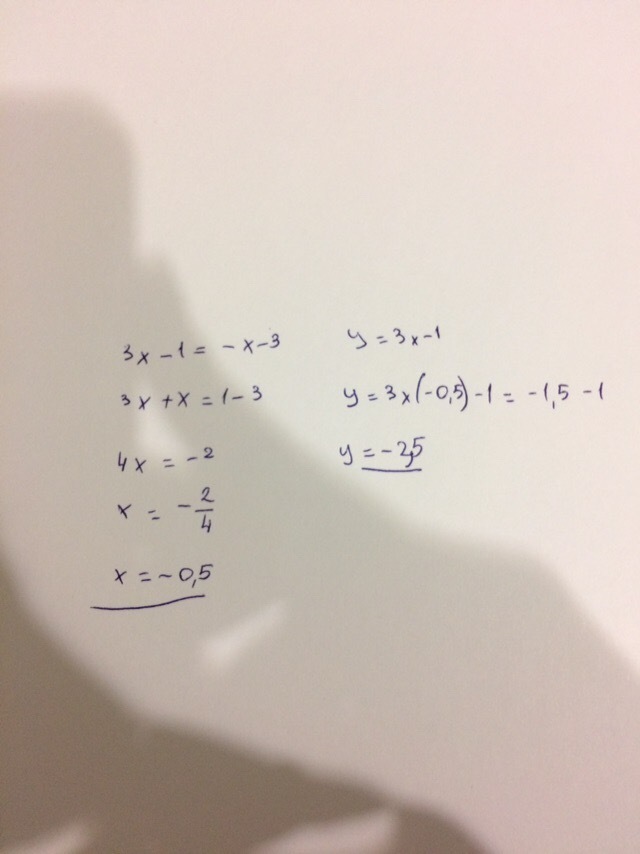 3x - 1 = - x - 3
3x + x = 1 - 3
4x = - 2
x = - 2/4
x = - 0,5
y = 3x - 1
y = 3x(-0,5) - 1 = - 1,5 - 1
y = - 2,5